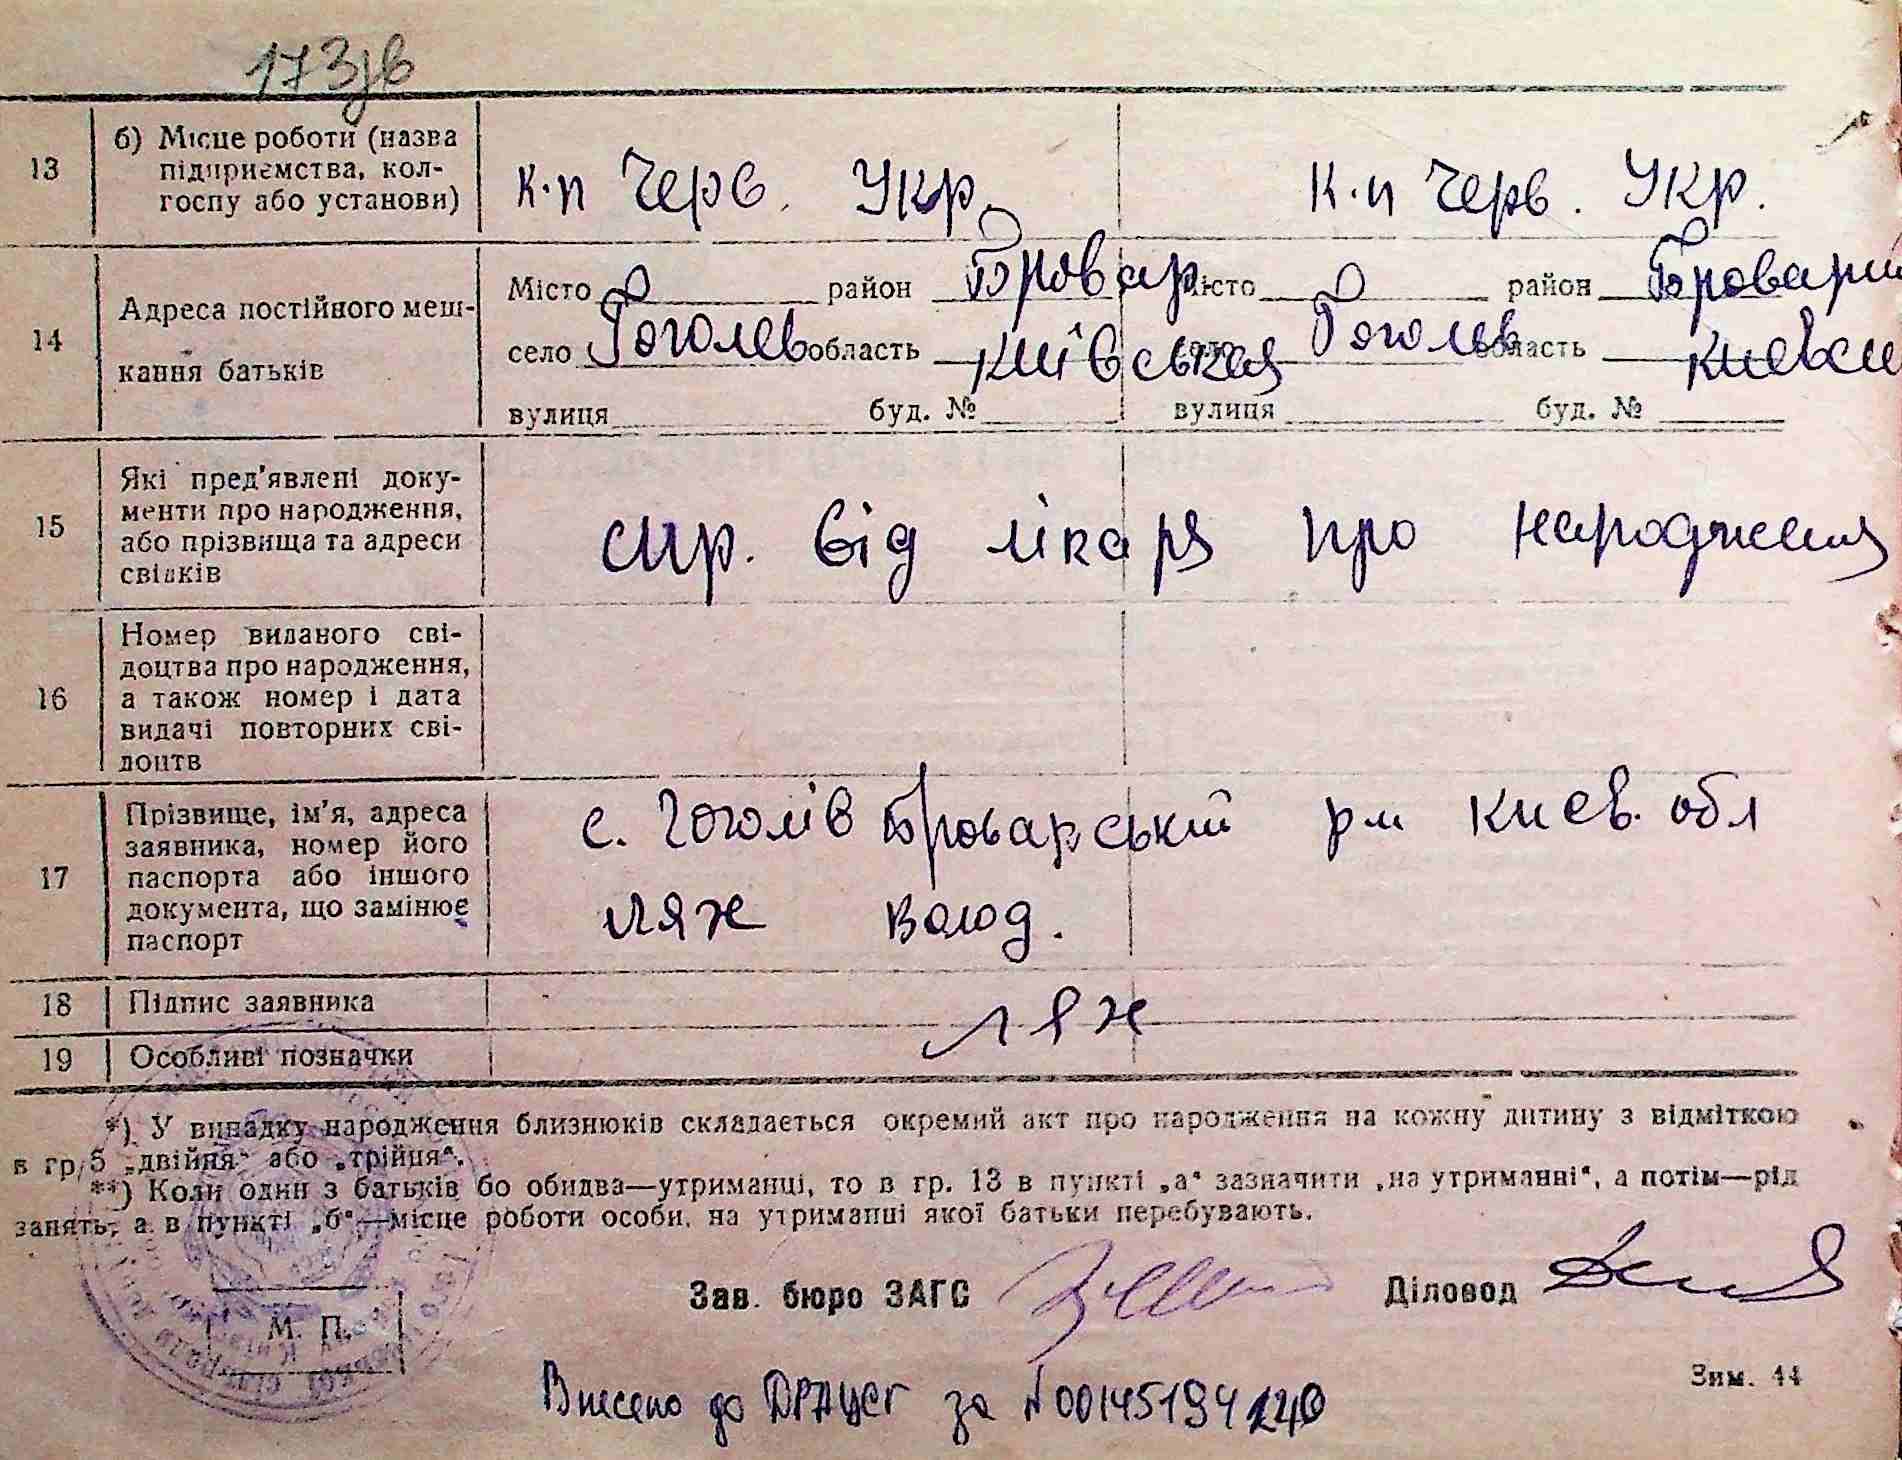 173зв
13 б) Місце роботи (назва підприємства, колгоспу або установи) к.п Черв. Укр. к.п Черв. Укр.
14 Адреса постійного мешкання батьків
Місто район Бровар. Місто район Броварсь
село Гоголев область київська село Гоголев область киевськ
вулиця буд. № вулиця буд. №
15 Які пред'явлені документи про народження, або прізвища та адреси свідків спр. від лікаря про народження
16 Номер виданого свідоцтва про народження, а також номер і дата видачі повторних свідоцтв
17 Прізвище, ім'я, адреса заявника, номер його паспорта або іншого документа, що замінює паспорт
с. Гоголів Броварський р-н Києв. обл
Лях Волод.
18 Підпис заявника Лях
19 Особливі позначки
*) У випадку народження близнюків складається окремий акт про народження на кожну дитину з відміткою
в гр. 5 „двійня“ або „трійця“.
**) Коли один з батьків бо обидва—утриманці, то в гр. 13 в пункті „а“ зазначити „на утриманні“, а потім—рід
занять, а в пункті „б“—місце роботи особи, на утриманні якої батьки перебувають.
Зав. бюро ЗАГС Діловод
М. П.
Зим. 44
Внесено до ДРАЦСГ за №00145194240